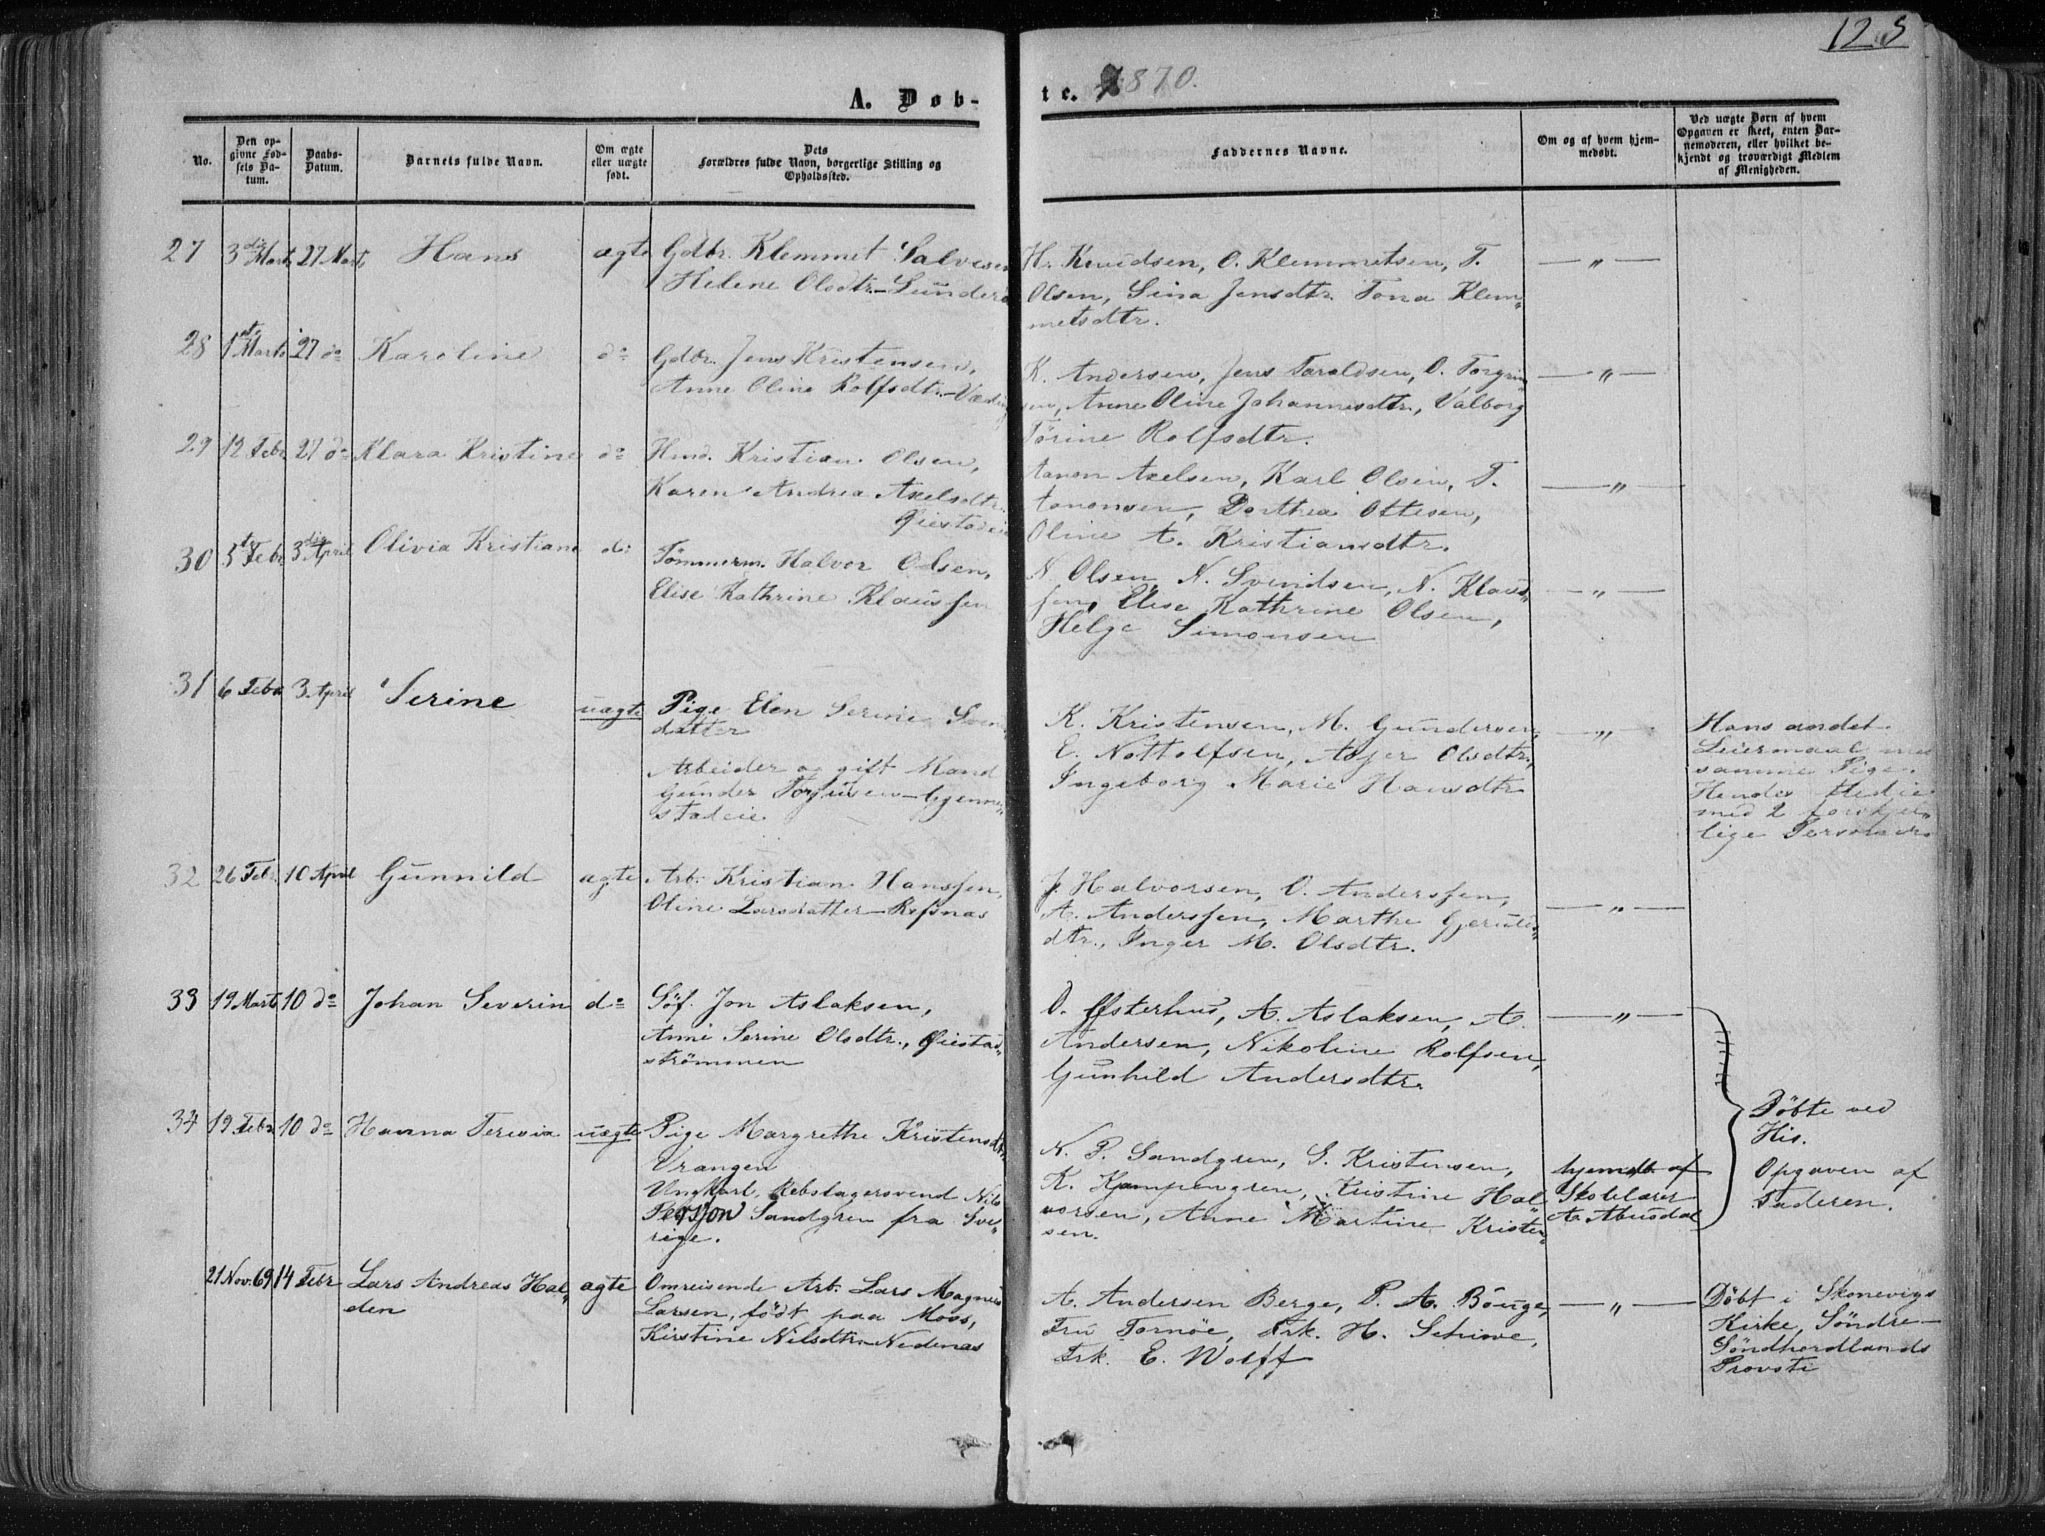 125
A. Døb- te. 1870.
No.
Den opgivne Fødsels Datum.
Daabs-Datum.
Barnets fulde Navn.
Om ægte eller uægte født.
Dets Forældres fulde Navn, borgerlige Stilling og Opholdssted.
Faddernes Navne.
Om og af hvem hjemmedøbt.
Ved uægte Børn af hvem Opgaven er skeet, enten Barnemoderen, eller hvilket bekjendt og troværdigt Medlem af Menigheden.
27 3die Marts 27 Marts Hans ægte Gdbr. Klemmet Salvesen
Helene Olsdtr.
H. Knudsen, O. Klemmetsen, T.
Olsen, Sina Jensdtr. Tona Klem-
metsdtr.
— " —
28 1ste Marts 27 do Karoline do Gdbr. Jens Kristensen,
Anne Oline Rolfsdtr.
K. Andersen, Jens Taraldsen, O. Torgrim
sen, Anne Oline Johannesdtr, Valborg
Tørine Rolfsdtr.
— " —
29 12 Febr. 27 do Klara Kristine do Hmd. Kristian Olsen,
Karen Andrea Axelsdtr.
Øiestadeie
Aanon Axelsen, Karl Olsen, T.
Aanonsen, Dorthea Ottesen,
Oline A. Kristiansdtr.
— " —
30 5te Febr 3die April Olivia Kristiane do Tømmerm. Halvor Olsen,
Elise Kathrine Klaussen
N Olsen, N. Svendsen, N. Klaus-
sen, Elise Kathrine Olsen,
Helge Simonsen
— " —
31 6 Febr 3 April Serine uægte Pige Elen Serine Sven
datter
Arbeider og gift Mand
Gunder Torjusen - Gjenne-
stadeie
K. Kristensen, M. Gundersen,
E. Nottolfsen, Asjer Olsdtr.,
Ingeborg Marie Hansdtr
— " —
Hans andet
Leiermaal med
samme Pige.
Hendes tredie
med 2 forskjel-
lige Personer
32 26 Febr. 10 April Gunnild ægte Arb. Kristian Hanssen,
Oline Larsdatter - Refsnæs
J. Halvorsen, O. Anderssen,
A. Anderssen, Marthe
dtr., Inger M. Olsdtr.
— " —
33 19 Marts 10 do Johan Severin do Søf. Jon Aslaksen,
Anne Serine Olsdtr., Øiestad-
strømmen
O. Østerhus, A. Aslaksen, A.
Andersen, Nikoline Rolfsen,
Gunhild Andersdtr.
— " —
34 19 Febr. 10 do Hanna Teresia uægte Pige Margrethe Kristensdtr.
Vrangen
Ungkarl, Rebslagersvend Nils
Persson Sandgren fra Sve-
rige.
N. P. Sandgren, G. Kristensen,
K. Kampengren, Kristine Hal-
vorsen, Anne Martine Kristen-
sen.
hjemdbt af
Skolelærer
A. Abusdal
Døbte ved
His.
Opgaven af
Faderen.
21 Nov. 69 14 Febr Lars Andreas Hal-
den
ægte Omreisende Arb. Lars Magnus
Larsen, født paa Moss,
Kirstine Nilsdtr - Nedenæs
A. Andersen Berge, P. A. Bøuge,
Fru Tornøe, Frk. H. Schiwe,
Frk. E. Wolff
— " —
Døbt i Skonevigs
Kirke, Søndre-
Søndhordlands
Provsti